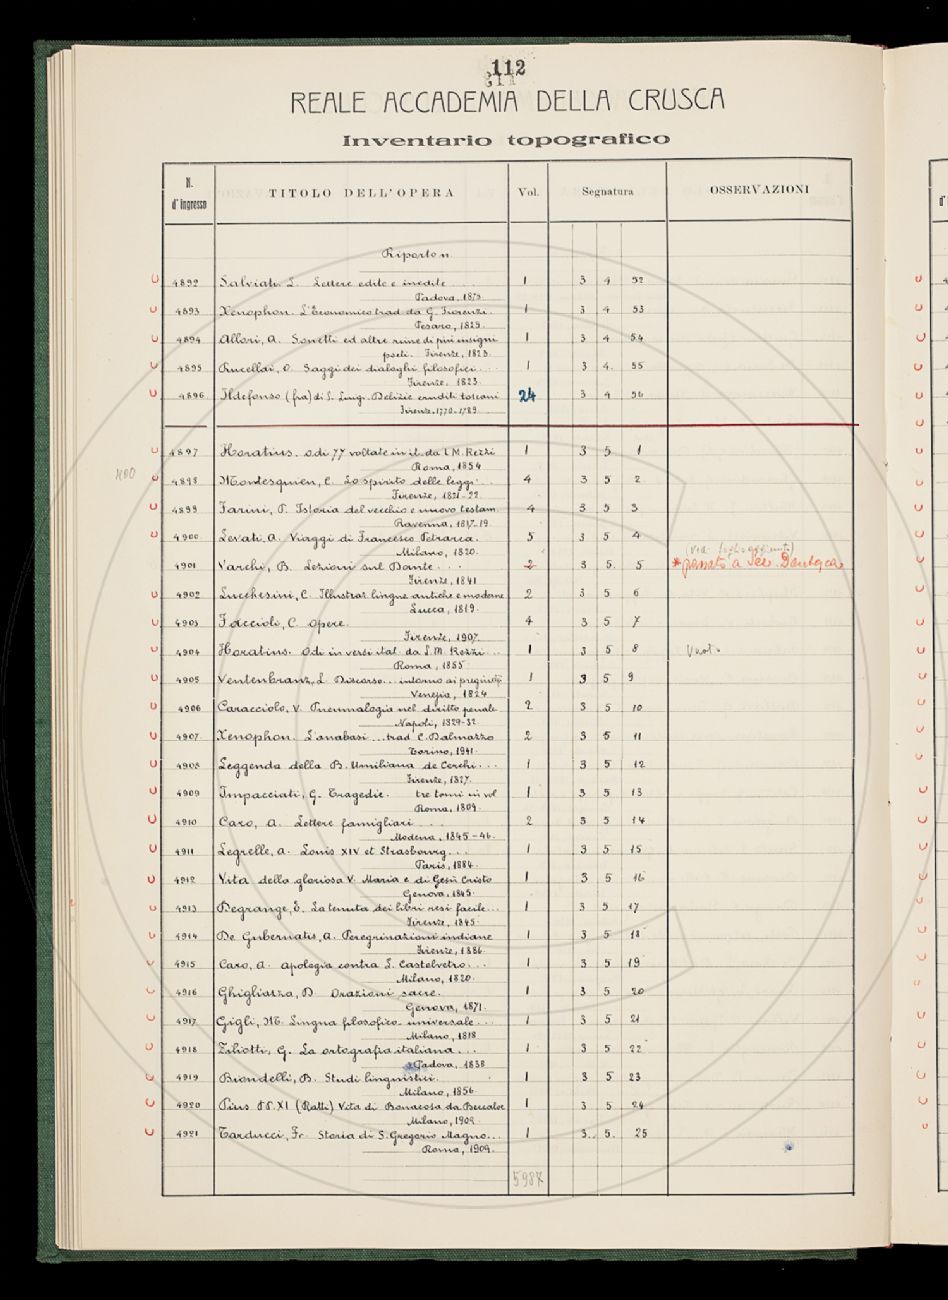 112
REALE ACCADEMIA DELLA CRUSCA
Inventario topografico
N. d'Ingresso TITOLO DELL'OPERA Vol. Segnatura OSSERVAZIONI
Riporto n.
4892 Salviati. L. Lettere edite e inedite 1 3 4 52
Padova, 1875
4893 Xenophon. L'Economico trad da G. Fiorenzi. 1 3 4 53
Pesaro, 1825.
4894 Allori, A. Sonetti ed altre rime di più insigni 1 3 4 54
poeti. Firenze, 1823.
4895 Rucellai, O. Saggi dei dialoghi filosofici... 1 3 4. 55
Firenze. 1823.
4896 Ildefonso (fra) di S. Luigi. Delizie eruditi toscani 24 3 4 56
Firenze. 1770-1789
4897 Horatius. Odi 77 voltate in it. da L M. Rezzi 1 3 5 1
Roma, 1854
400
4898 Montesquieu, C. Lo spirito delle leggi... 4 3 5 2
Firenze, 1821-22.
4899 Farini, P. Istoria del vecchio e nuovo testam. 4 3 5 3
Ravenna, 1817-19.
4900 Levati, A. Viaggi di Francesco Petrarca. 5 3 5 4
Milano, 1820.
4901 Varchi, B. Lezioni sul Dante... 2 3 5. 5 * passato a Sez. Dantesca
Firenze, 1841
4902 Lucchesini, C. Illustraz. lingue antiche e moderne 2 3 5 6
Lucca, 1819.
4903 Faccioli, C. Opere. 4 3 5 7
Firenze, 1907.
4904 Horatius. Odi in versi ital. da L.M. Rezzi... 1 3 5 8
Roma, 1855
4905 Ventenbranz, L. Discorso... intorno ai pregiudizi 1 3 5 9
Venezia, 1824
4906 Caracciolo, V. Pneumalogia nel diritto penale 2 3 5 10
Napoli, 1829-32
4907. Xenophon. L'anabasi... trad C. Dalmazzo 2 3 5 11
Torino, 1941.
4908 Leggenda della B. Umiliana de Cerchi... 1 3 5 12
Firenze, 1827.
4909 Impacciati, G. Tragedie. tre tomi in vol 1 3 5 13
Roma, 1809.
4910 Caro, A. Lettere famigliari... 2 3 5 14
Modena, 1845-46.
4911 Legrelle, A. Louis XIV et Strasbourg... 1 3 5 15
Paris, 1884.
4912 Vita della gloriosa V. Maria e di Gesù Cristo 1 3 5 16
Genova, 1845.
4913 Degrange, E. La tenuta dei libri resi facile... 1 3 5 17
Firenze, 1845.
4914 De Gubernatis, A. Peregrinazioni indiane 1 3 5 18
Firenze, 1886.
4915 Caro, A. Apologia contra L. Castelvetro... 1 3 5 19
Milano, 1820.
4916 Ghigliazza, D. Orazioni sacre. 1 3 5 20
Genova, 1871.
4917. Gigli, M. Lingua filosofico-universale... 1 3 5 21
Milano, 1818
4918 Ziliotti, G. La ortografia italiana... 1 3 5 22
Padova, 1838
4919 Biondelli, B. Studi linguistici. 1 3 5 23
Milano, 1856
4920 Pius PP. XI (Ratti) Vita di Bonacosa da Beccaloe 1 3 5 24
Milano, 1909.
4921 Tarducci, Fr. Storia di S. Gregorio Magno... 1 3.. 5. 25
Roma, 1909.
5987